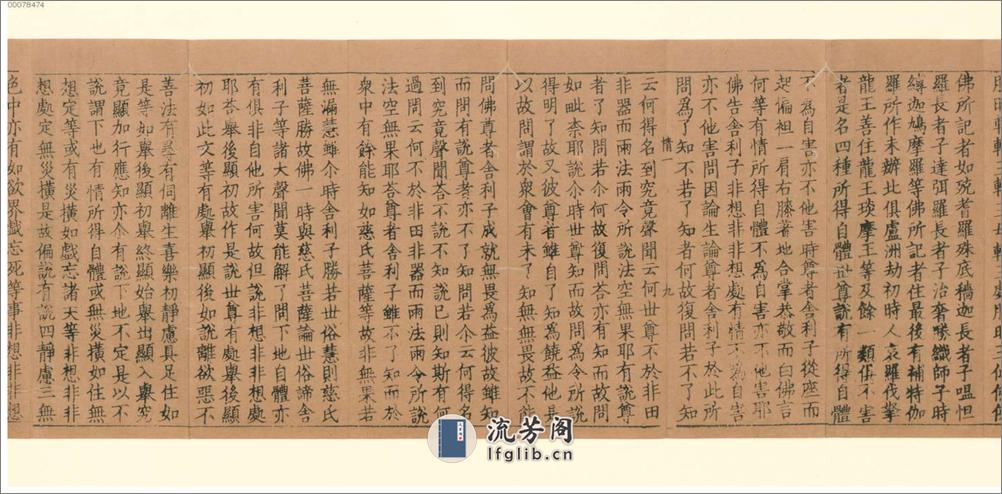 佛所記者如殑耆羅殊底穡迦長者子嗢怛
羅長者子達弭羅長者子治奢哆織師子時
縛迦鳩摩羅等佛所記者住最後有補特伽
羅所作未辦北俱盧洲劫初時人哀羅伐拏
龍王善住龍王琰摩王等及餘一類俱不害
者是名四種所得自體世尊說有所得自體
不為自害亦不他害時尊者舍利子從座而
起偏袒一肩右膝著地合掌恭敬而白佛言
何等有情所得自體不為自害亦不他害耶
佛告舍利子非想非非想處有情不為自害
亦不他害問因論生論尊者舍利子於此所
問為了知不若了知者何故復問若不了知
情 九
云何得名到究竟聲聞云何世尊不於非田
非器而雨法雨令所說法空無果耶有說尊
者了知問若尒何故復問荅亦有知而故問
如毗柰耶說尒時世尊知而故問為令所說
得明了故又彼尊者雖自了知為饒益他是
以故問謂於衆會有未了知無無畏故不能
問佛尊者舍利子成就無畏為益彼故雖知
而問有說尊者亦不了知問若尒云何得名
到究竟聲聞荅不說不知說已則知斯有何
過問云何不於非田非器而雨法雨令所說
法空無果耶荅尊者舍利子雖不了知而於
衆中有餘能知如慈氏菩薩等故非無果若
無漏慧雖尒時舍利子勝若世俗慧則慈氏
菩薩勝故佛一時與慈氏菩薩論世俗諦舍
利子等諸大聲聞莫能解了問下地自體亦
有俱非自他所害何故但說非想非非想處
耶荅舉後顯初故作是說世尊有處舉後顯
初如此文等有處舉初顯後如說離欲惡不
善法有尋有伺離生喜樂初靜慮具足住如
是等如舉後顯初舉終顯始舉出顯入舉究
竟顯加行應知亦尒有說下地不定是以不
說謂下地有情所得自體或無災橫如住無
想定等或有災橫如戲忘諸天等非想非非
想處定無災橫是故偏說有說四靜慮三無
色中亦有如欲界戲忘死等事非想非非想
00078474
流芳阁
lfglib.cn